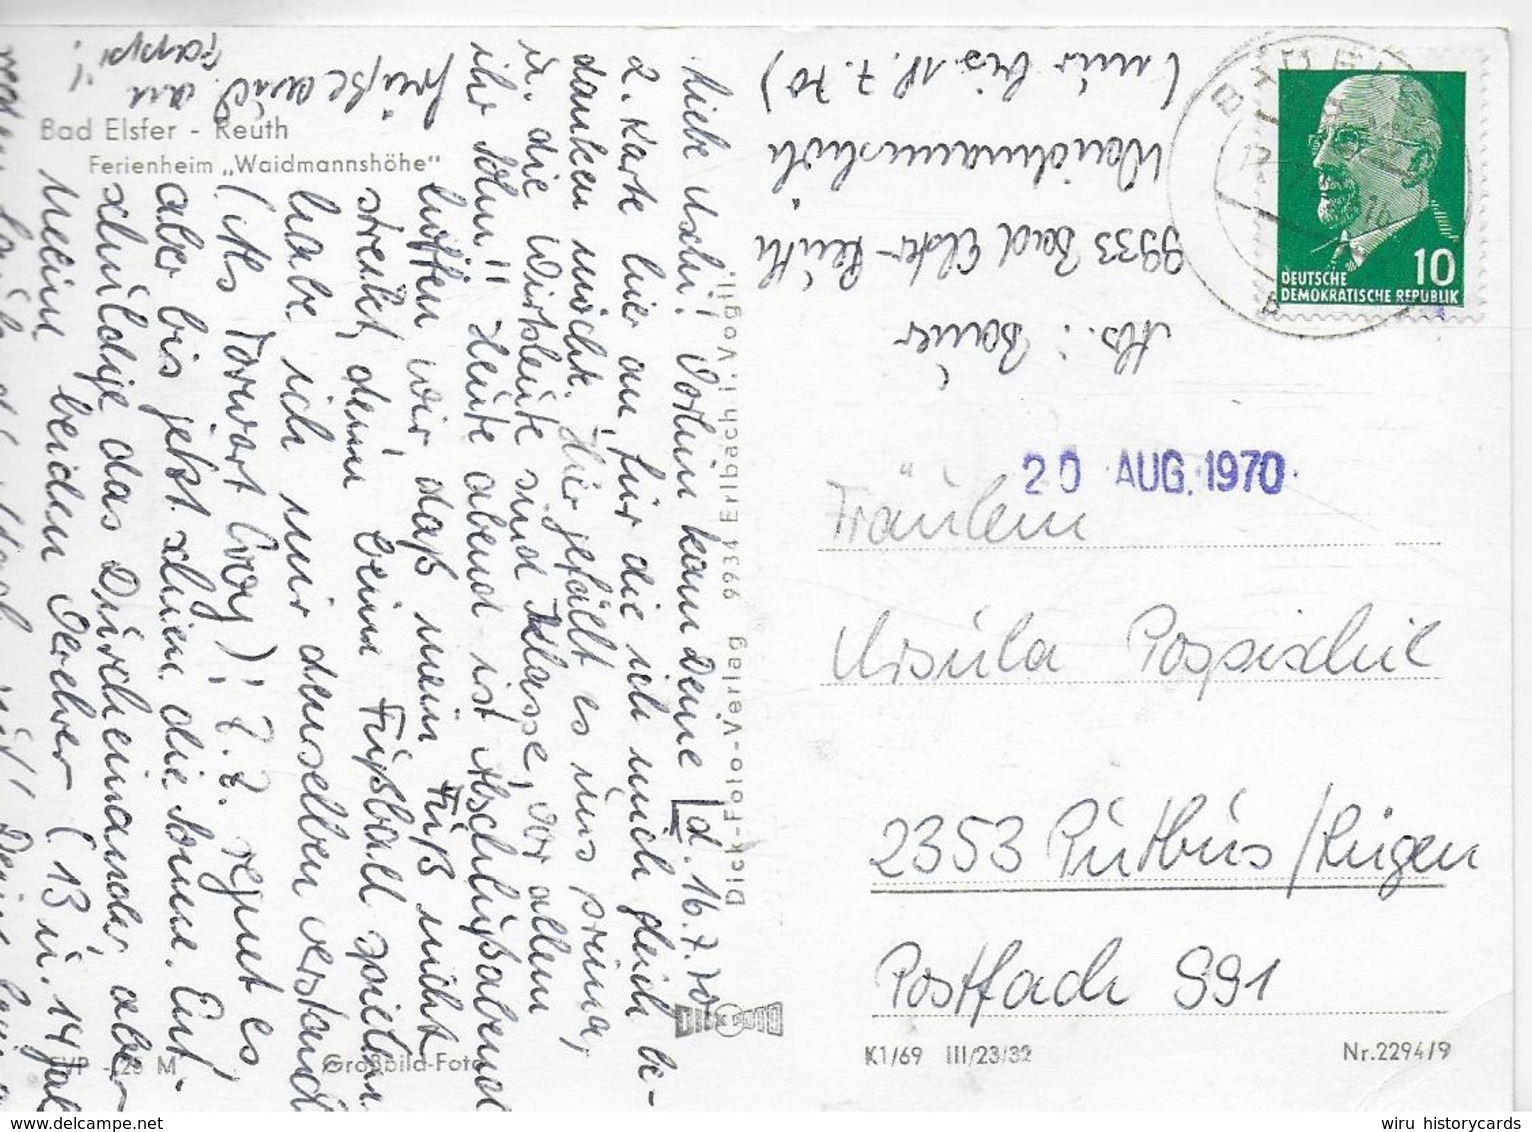 Bad Elsfer - Reuth
Ferienheim „Waidmannshöhe"
d. 16.7.70
Liebe Uschi! Vorhin kam Deine
2. Karte hier an, für die ich mich gleich be-
danken möcht. Hier gefällt es uns prima,
u. die Wirtsleute sind Klasse, vor allem
ihr Sohn!! Heute abend ist Abschlußabend
hoffen wir, daß mein Fuß nicht
streikt, denn beim Fußball spielen
habe ich mir denselben verstaucht
(Als Torwart Croy)! Z. Z. regnet es
aber bis jetzt schien die Sonne. Ent-
schuldige das Durcheinander, aber
meine beiden Verehrer (13 u. 14 Jah
grüße auch an
Pappi!
Dick-Foto-Verlag 9934 Erlbach i. Vogtl.
DICK FOTO
EVP -,25 M
Großbild-Foto
Abs.: Bauer
9933 Bad Elster-Reuth
Waidmannshöh
(nur bis 18.7.70)
DEUTSCHE
DEMOKRATISCHE REPUBLIK
10
20 AUG. 1970
Fräulein
Ursula Pospischil
2353 Putbus/Rügen
Postfach 991
K1/69 III/23/32
Nr.2294/9
www.delcampe.net
wiru historycards